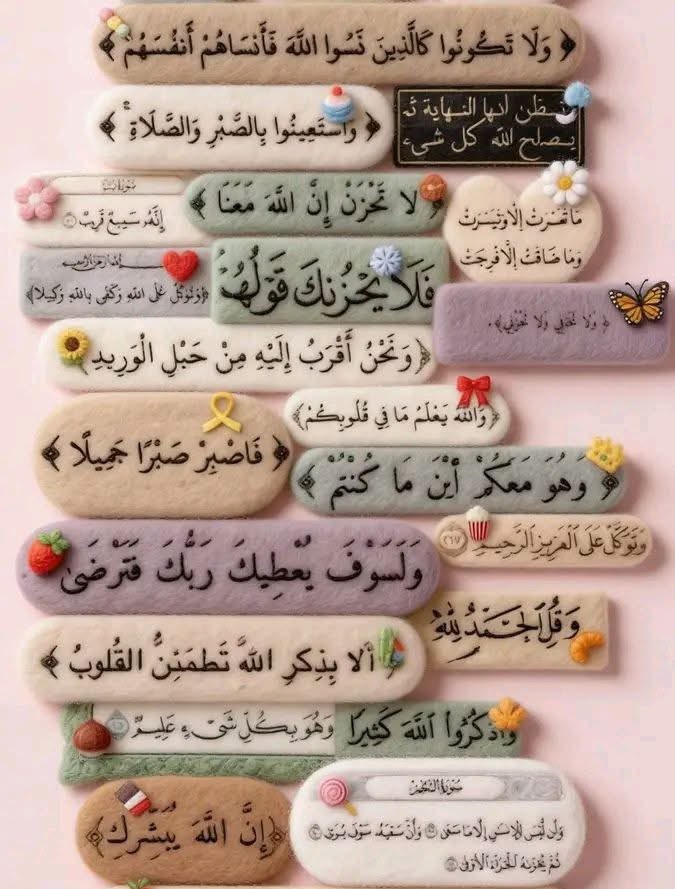 ﴿ وَلَا تَكُونُوا كَالَّذِينَ نَسُوا اللَّهَ فَأَنسَاهُمْ أَنفُسَهُمْ ﴾
﴿ وَاسْتَعِينُوا بِالصَّبْرِ وَالصَّلَاةِ ﴾
نـظن انها النهاية ثم
يـصلح الله كل شيء
إِنَّهُ سَمِيعٌ قَرِيبٌ
لَا تَحْزَنْ إِنَّ اللَّهَ مَعَنَا ﴾
مَا تَعَسَّرَتْ إِلَّا وَتَيَسَّرَتْ
وَمَا ضَاقَتْ إِلَّا فُرِجَتْ
﴿وَتَوَكَّلْ عَلَى اللَّهِ وَكَفَىٰ بِاللَّهِ وَكِيلًا﴾
فَلَا يَحْزُنكَ قَوْلُهُمْ
﴿ وَلَا تَخَافِي وَلَا تَحْزَنِي ﴾.
﴿وَنَحْنُ أَقْرَبُ إِلَيْهِ مِنْ حَبْلِ الْوَرِيدِ﴾
﴿وَاللَّهُ يَعْلَمُ مَا فِي قُلُوبِكُمْ﴾
﴿ فَاصْبِرْ صَبْرًا جَمِيلًا ﴾
﴿ وَهُوَ مَعَكُمْ أَيْنَ مَا كُنتُمْ ﴾
وَتَوَكَّلْ عَلَى الْعَزِيزِ الرَّحِيمِ ٢١٧
وَلَسَوْفَ يُعْطِيكَ رَبُّكَ فَتَرْضَىٰ
وَقُلِ الْحَمْدُ لِلَّهِ
أَلَا بِذِكْرِ اللَّهِ تَطْمَئِنُّ القُلُوبُ ﴾
وَهُوَ بِكُلِّ شَيْءٍ عَلِيمٌ
وَاذْكُرُوا اللَّهَ كَثِيرًا
﴿إِنَّ اللَّهَ يُبَشِّرُكِ﴾
سُورَةُ النَّجْمِ
وَأَن لَّيْسَ لِلْإِنسَانِ إِلَّا مَا سَعَىٰ ٣٩ وَأَنَّ سَعْيَهُ سَوْفَ يُرَىٰ ٤٠
ثُمَّ يُجْزَاهُ الْجَزَاءَ الْأَوْفَىٰ ٤١